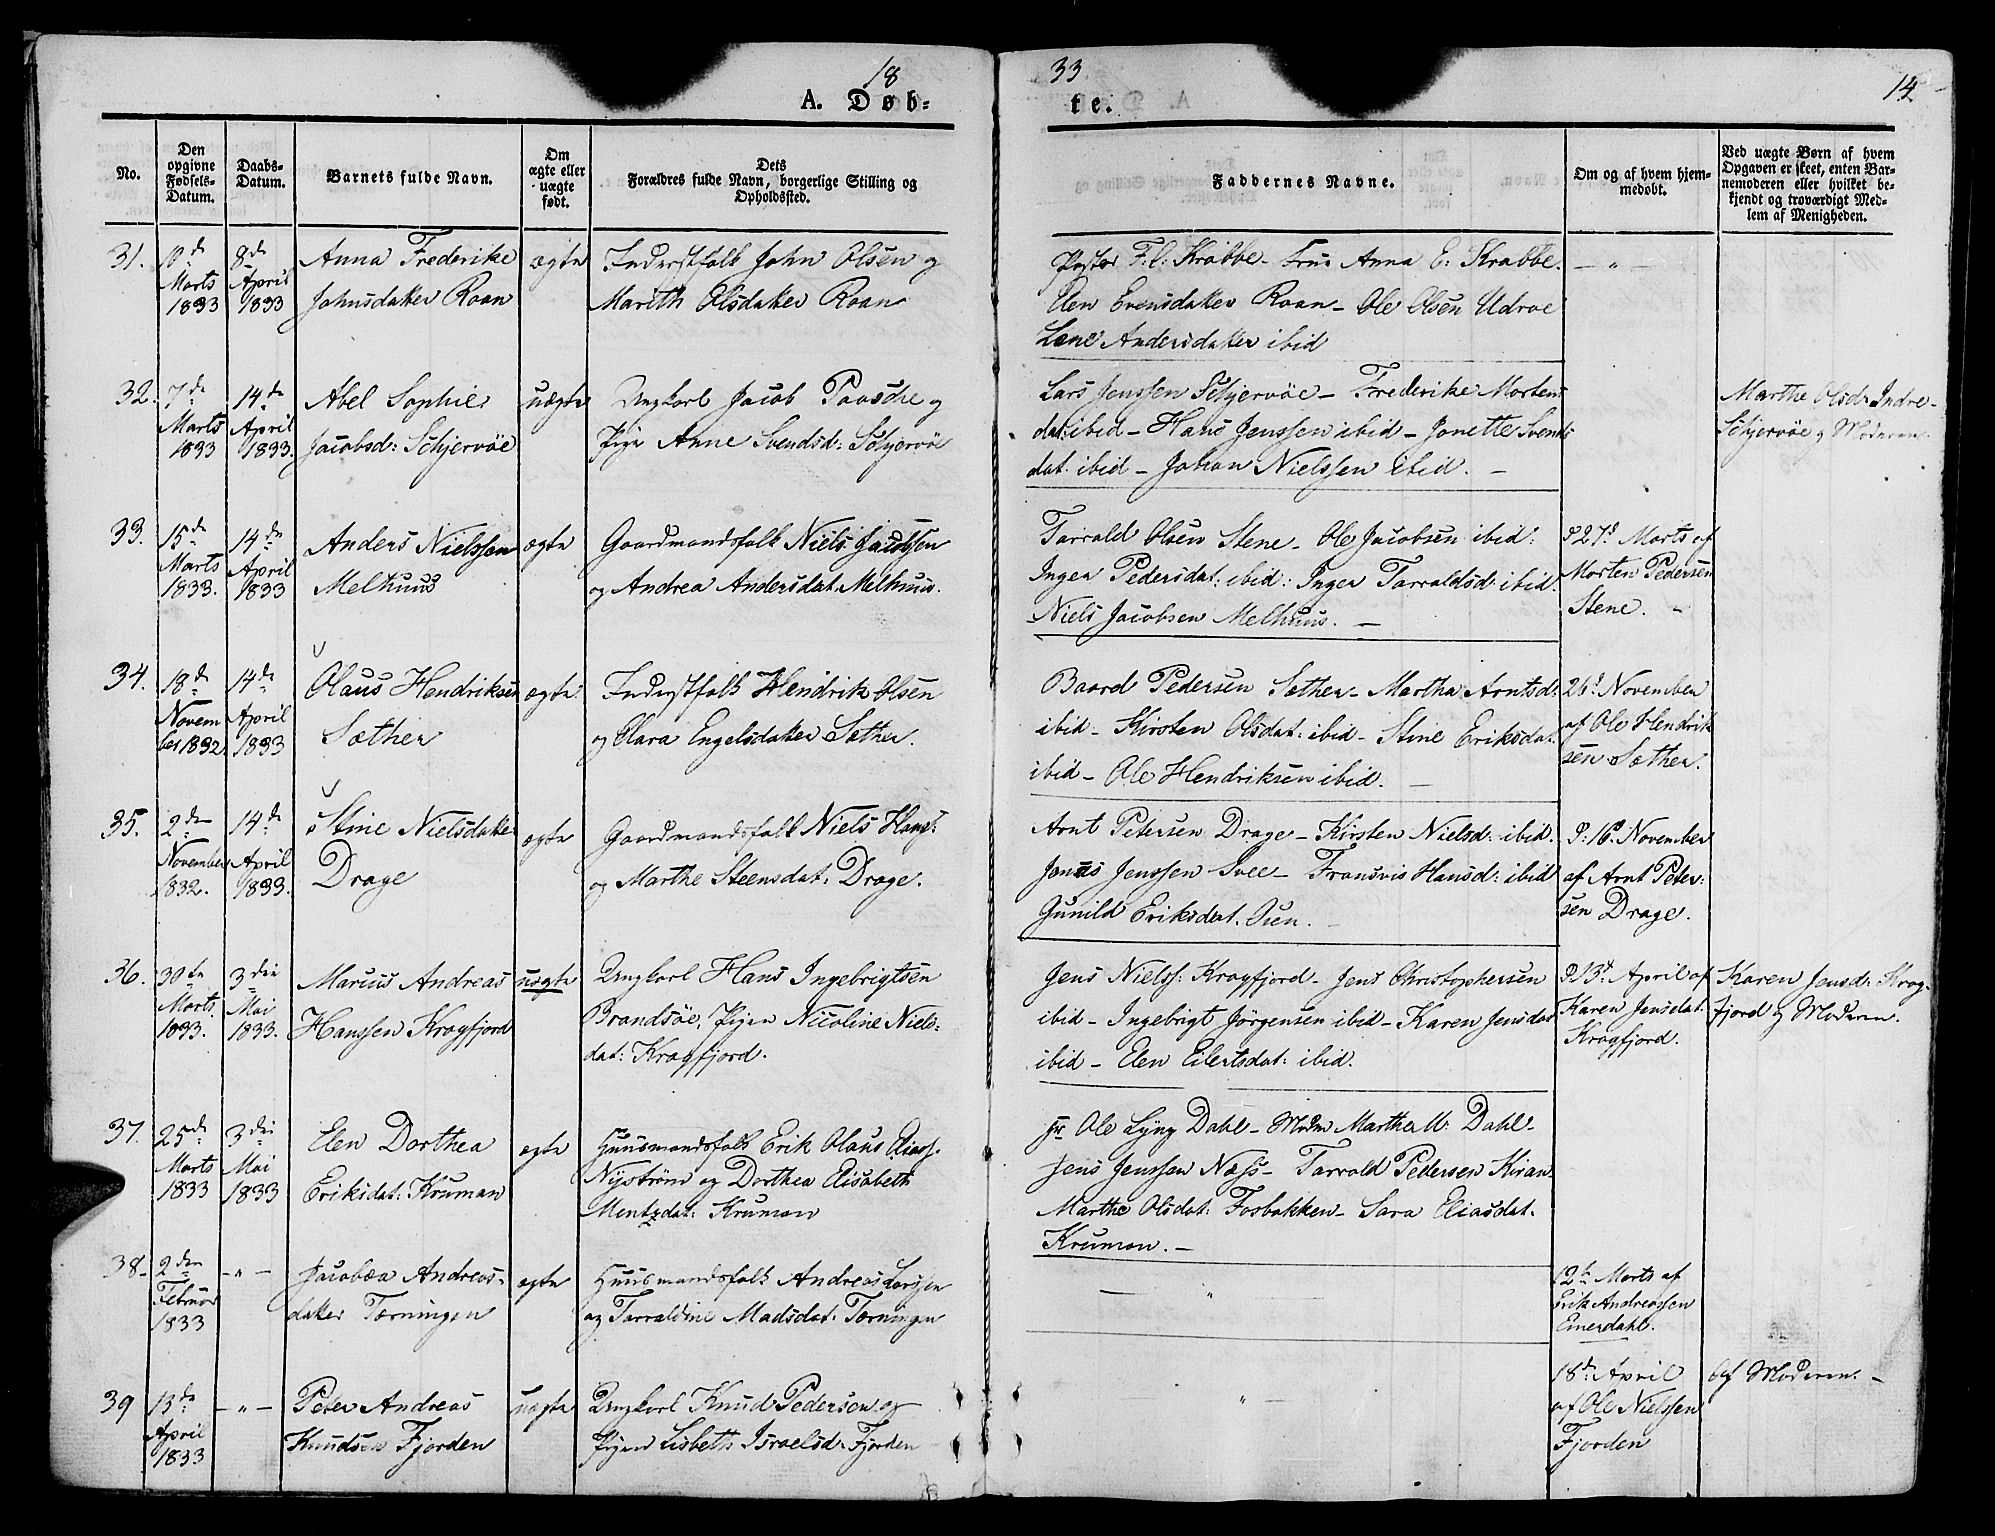 18 33
14.
A. Døb-
te.
No.
Den opgivne Fødsels-Datum.
Daabs-Datum.
Barnets fulde Navn.
Om ægte eller uægte født.
Dets Forældres fulde Navn, borgerlige Stilling og Opholdssted.
Faddernes Navne.
Om og af hvem hjemmedøbt.
Ved uægte Børn af hvem Opgaven er skeet, enten Barnemoderen eller hvilket bekjendt og troværdigt Medlem af Menigheden.
31.
10de Marts 1833
8de April 1833
Anna Frederike
Johnsdatter Roan
ægte
Inderstfolk John Olsen og
Mareth Olsdatter Roan
Pastor F. C: Krabbe - Frue Anna E: Krabbe.
Elen Evensdatter Roan - Ole Olsen Udroe
Lene Andersdatter ibid
- " -
32.
7de Marts 1833
14de April 1833.
Abel Sophie
Jacobsd: Schjervöe
uægte
Ungkarl Jacob Paasche og
Pige Anne Svendsd: Schjervöe
Lars Jenssen Schjervöe - Frederike Mortens
dat: ibid - Hans Jenssen ibid - Jonette Svends
dat. ibid - Johan Nielssen ibid. -
Marthe Olsd: Indre-
Schjervöe og Moderen.
33.
15de Marts 1833.
14de April 1833
Anders Nielssen
Melhuus
ægte
Gaardmandsfolk Niels Jacobsen
og Andrea Andersdat. Melhuus.
Tarrald Olsen Stene - Ole Jacobsen ibid:
Inger Pedersdat. ibid: Inger Tarraldsd: ibid.
Niels Jacobsen Melhuus. -
d 27d Marts af
Morten Pedersen
Stene.
34.
18de Novem
ber 1832
14de April 1833
Olaus Hendriksen
Sæther
ægte
Inderstfolk Hendrik Olsen
og Clara Engelsdatter Sæther.
Baard Pedersen Sæther - Martha Arntsd:
ibid - Kirsten Olsdat: ibid - Stine Eriksdat:
ibid - Ole Hendriksen ibid. -
26d November
af Ole Hendrik
sen Sæther.
35.
2den November 1832.
14de April 1833.
Stine Nielsdatter
Drage
ægte
Gaardmandsfolk Niels Hans:
og Marthe Steensdat. Drage.
Arnt Petersen Drage - Kirsten Nielsd: ibid.
Jenssen Svee - Fransvis Hansd: ibid
Gunild Eriksdat.
D: 16d November
af Arnt Peter:
sen Drage.
36.
30te Marts 1833.
3die Mai 1833.
Marius Andreas
Hanssen Kragfjord
uægte
Ungkarl Hans Ingebrigtsen
Brandsöe, Pigen Nicoline Niels-
dat: Kragfjord.
Jens Nielss: Kragfjord - Jens Christophersen
ibid - Ingebrigt Jörgensen ibid - Karen Jensdat
ibid - Elen Eilertsdat: ibid.
d 13d April af
Karen Jensdat.
Kragfjord.
Karen Jensd: Krag-
fjord og Moderen.
37.
25de Marts 1833
3die Mai 1833
Elen Dorthea
Eriksdat: Kruman
ægte
Huusmandsfolk Erik Olaus Eliass.
Nyström og Dorthea Elisabeth
Mentzdat: Kruman
Ole Lyng Dahl - Mdm Marthe M: Dahl -
Jens Jenssen Næss - Tarrald Pedersen Kiran.
Marthe Olsdat: Fosbakken - Sara Eliasdat.
Kruman. -
38.
2den Februar 1833
- " -
Jacobæa Andreas-
datter Tærningen
ægte
Huusmandsfolk Andreas Larssen
og Tarraldine Madsdat: Tærningen
- " -
12te Marts af
Erik Andreassen
Einerdahl.
39
13de April 1833
- " -
Peter Andreas
Knudsen Fjorden
uægte
Ungkarl Knud Pedersen og
Pigen Lisbeth Israelsd: Fjorden
" -
18de April
af Ole Nielssen
Fjorden
af Moderen. -